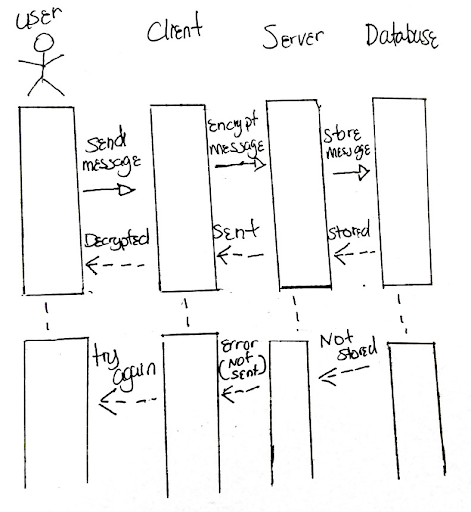 User
Client
Server
Database
Send
message
Encrypt
message
Store
message
Decrypted
Sent
Stored
try
again
Error
(Not
sent)
Not
stored